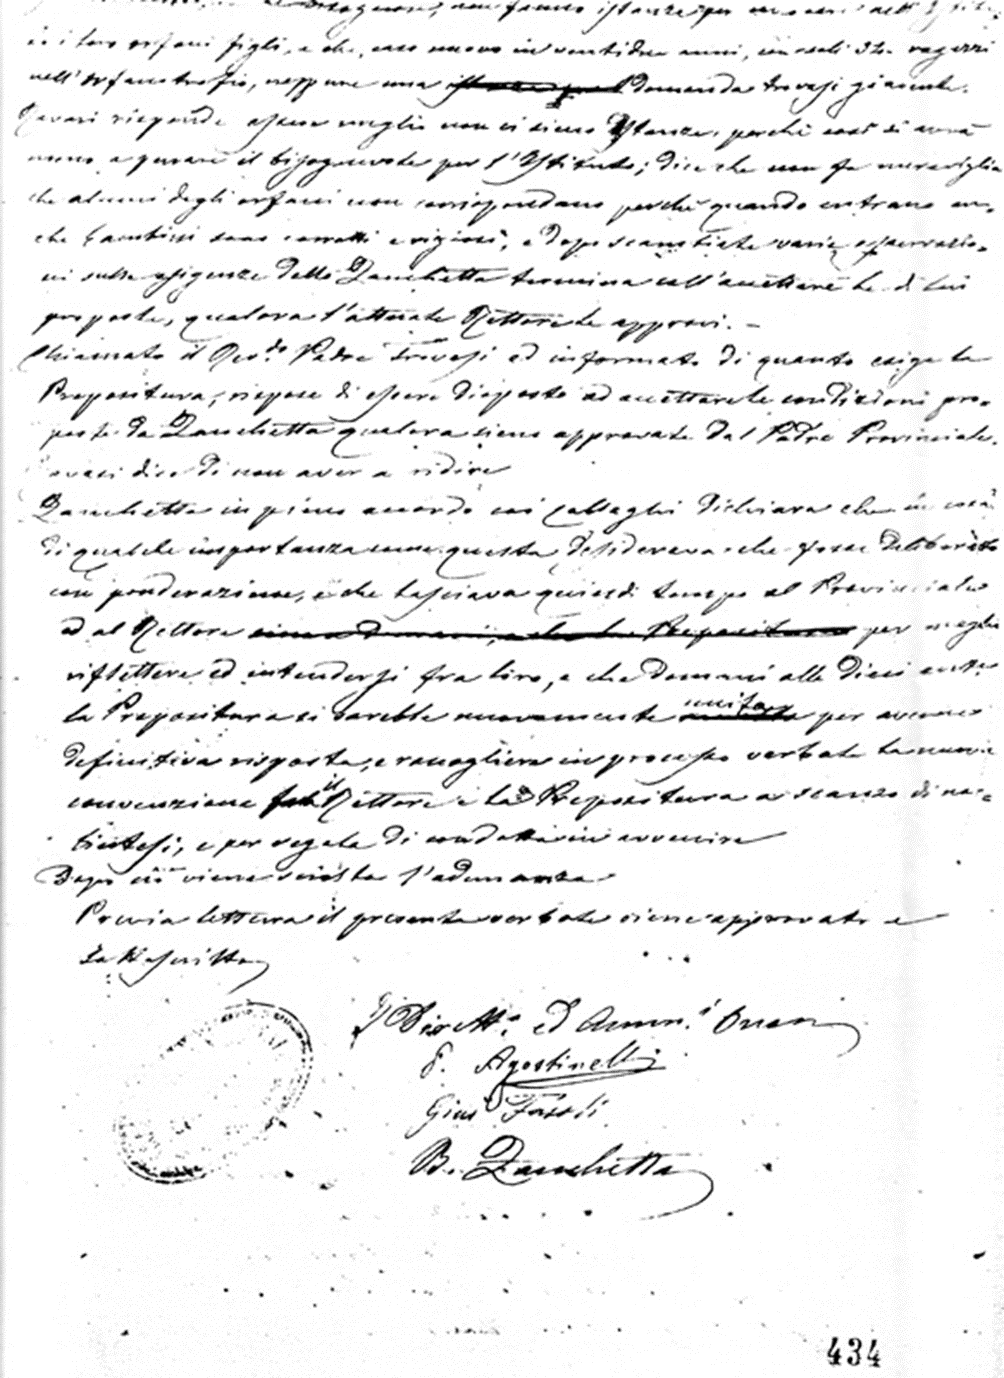 bisognose, non fanno istanze per
i loro orfani figli, e che, caso nuovo in ventidue anni, con soli 32 ragazzi
nell'orfanotrofio, neppure una domanda trovasi giacente.
risponde essere meglio non ci sieno Istanze, perchè così si avrà
meno a gravare il bisognevole per l'Istituto; dice che non fa meraviglia
che alcuni degli orfani non corrispondano perchè quando entrano an-
che bambini sono corrotti e viziosi, e dopo scambiate varie osservazio-
ni sulle esigenze dello Zanchetta termina coll'accettare le di lui
proposte, qualora l'attuale Rettore le approvi. –
Chiamato il Rev.do Padre ed informato di quanto esige la
Prepositura, rispose di essere disposto ad accettare le condizioni pro-
poste da Zanchetta qualora sieno approvate dal Padre Provinciale.
dice di non aver a ridire
Zanchetta in pieno accordo coi Colleghi dichiara che in cosa
di qualche importanza come questa, desiderava che fosse deliberato
con ponderazione, e che lasciava quindi tempo al Provinciale
ed al Rettore per meglio
riflettere ed intendersi fra loro, e che domani alle Dieci
la Prepositura si sarebbe nuovamente unita per averne
definitiva risposta, e raccogliere in processo verbale la nuova
convenzione il Rettore e la Prepositura a scanso di ma-
lintesi, e per regola di condotta in avvenire
Dopo ciò viene sciolta l'adunanza
Previa lettura il presente verbale viene approvato e
Sottoscritto
Dirett.e ed Amm.i
P. Agostinelli
Gius Fasoli
B. Zanchetta
434